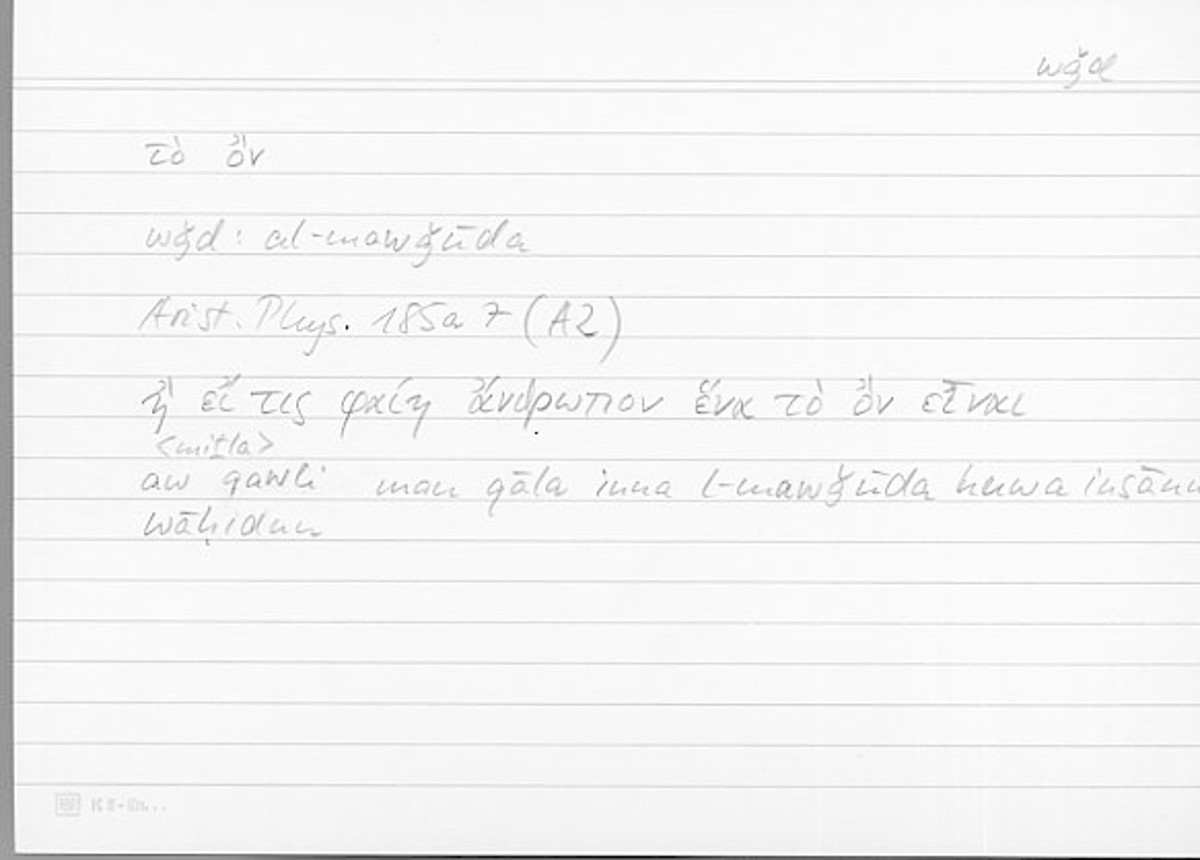 wǧd
τὸ ὄν
wǧd: al-mawǧūda
Arist. Phys. 185a 7 (A2)
ἢ εἴ τις φαίη ἄνθρωπον ἕνα τὸ ὂν εἶναι
<miṯla>
aw qawli man qāla inna l-mawǧūda huwa
wāḥidun